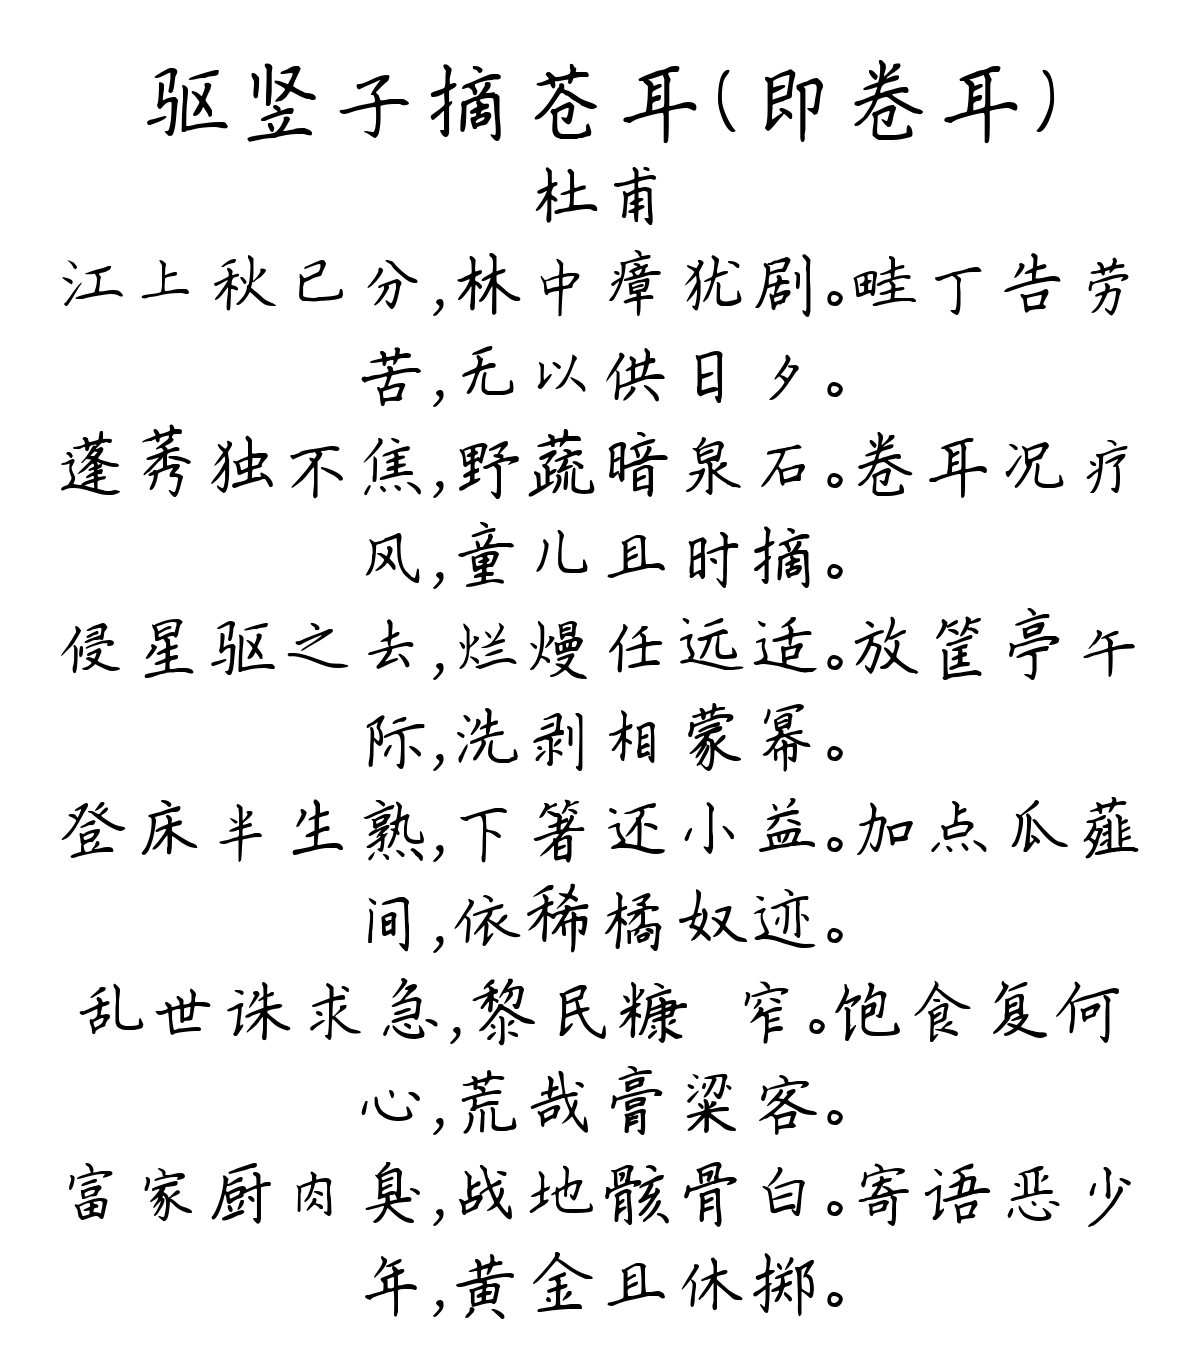 驱竖子摘苍耳(即卷耳)
杜甫
江上秋已分,林中瘴犹剧。畦丁告劳
苦,无以供日夕。
蓬莠独不焦,野蔬暗泉石。卷耳况疗
风,童儿且时摘。
侵星驱之去,烂熳任远适。放筐亭午
际,洗剥相蒙幂。
登床半生熟,下箸还小益。加点瓜薤
间,依稀橘奴迹。
乱世诛求急,黎民糠 窄。饱食复何
心,荒哉膏粱客。
富家厨肉臭,战地骸骨白。寄语恶少
年,黄金且休掷。